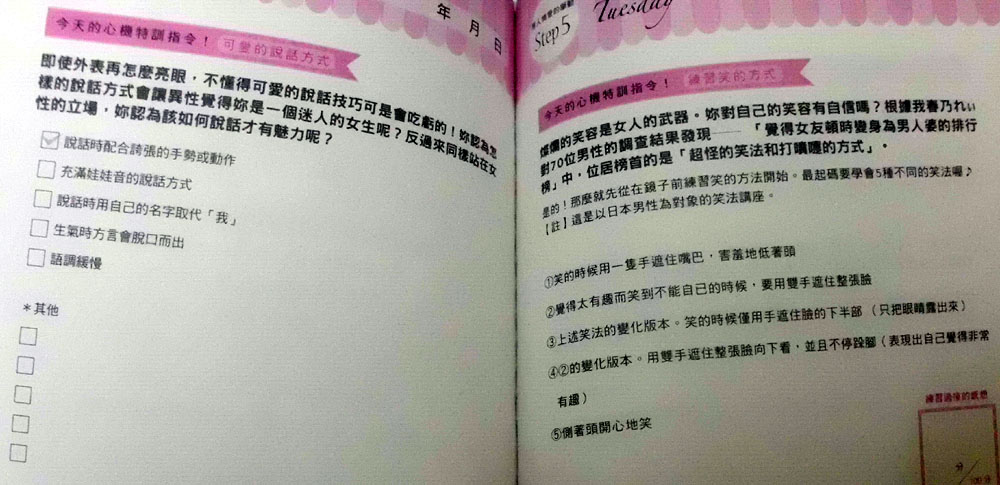 年 月 日
今天的心機特訓指令！ 可愛的說話方式
即使外表再怎麼亮眼，不懂得可愛的說話技巧可是會吃虧的！妳認為怎
樣的說話方式會讓異性覺得妳是一個迷人的女生呢？反過來同樣站在女
性的立場，妳認為該如何說話才有魅力呢？
說話時配合誇張的手勢或動作
充滿娃娃音的說話方式
說話時用自己的名字取代「我」
生氣時方言會脫口而出
語調緩慢
＊其他
Step 5
Tuesday
今天的心機特訓指令！ 練習笑的方式
燦爛的笑容是女人的武器。妳對自己的笑容有自信嗎？根據我春乃れぃ
對70位男性的調查結果發現——「覺得女友頓時變身為男人婆的排行
榜」中，位居榜首的是「超怪的笑法和打噴嚏的方式」。
是的！那麼就先從在鏡子前練習笑的方法開始。最起碼要學會5種不同的笑法喔♪
【註】這是以日本男性為對象的笑法講座。
①笑的時候用一隻手遮住嘴巴，害羞地低著頭
②覺得太有趣而笑到不能自已的時候，要用雙手遮住整張臉
③上述笑法的變化版本。笑的時候僅用手遮住臉的下半部（只把眼睛露出來）
④②的變化版本。用雙手遮住整張臉向下看，並且不停跺腳（表現出自己覺得非常
有趣）
⑤側著頭開心地笑
練習過後的感想
分
／100分